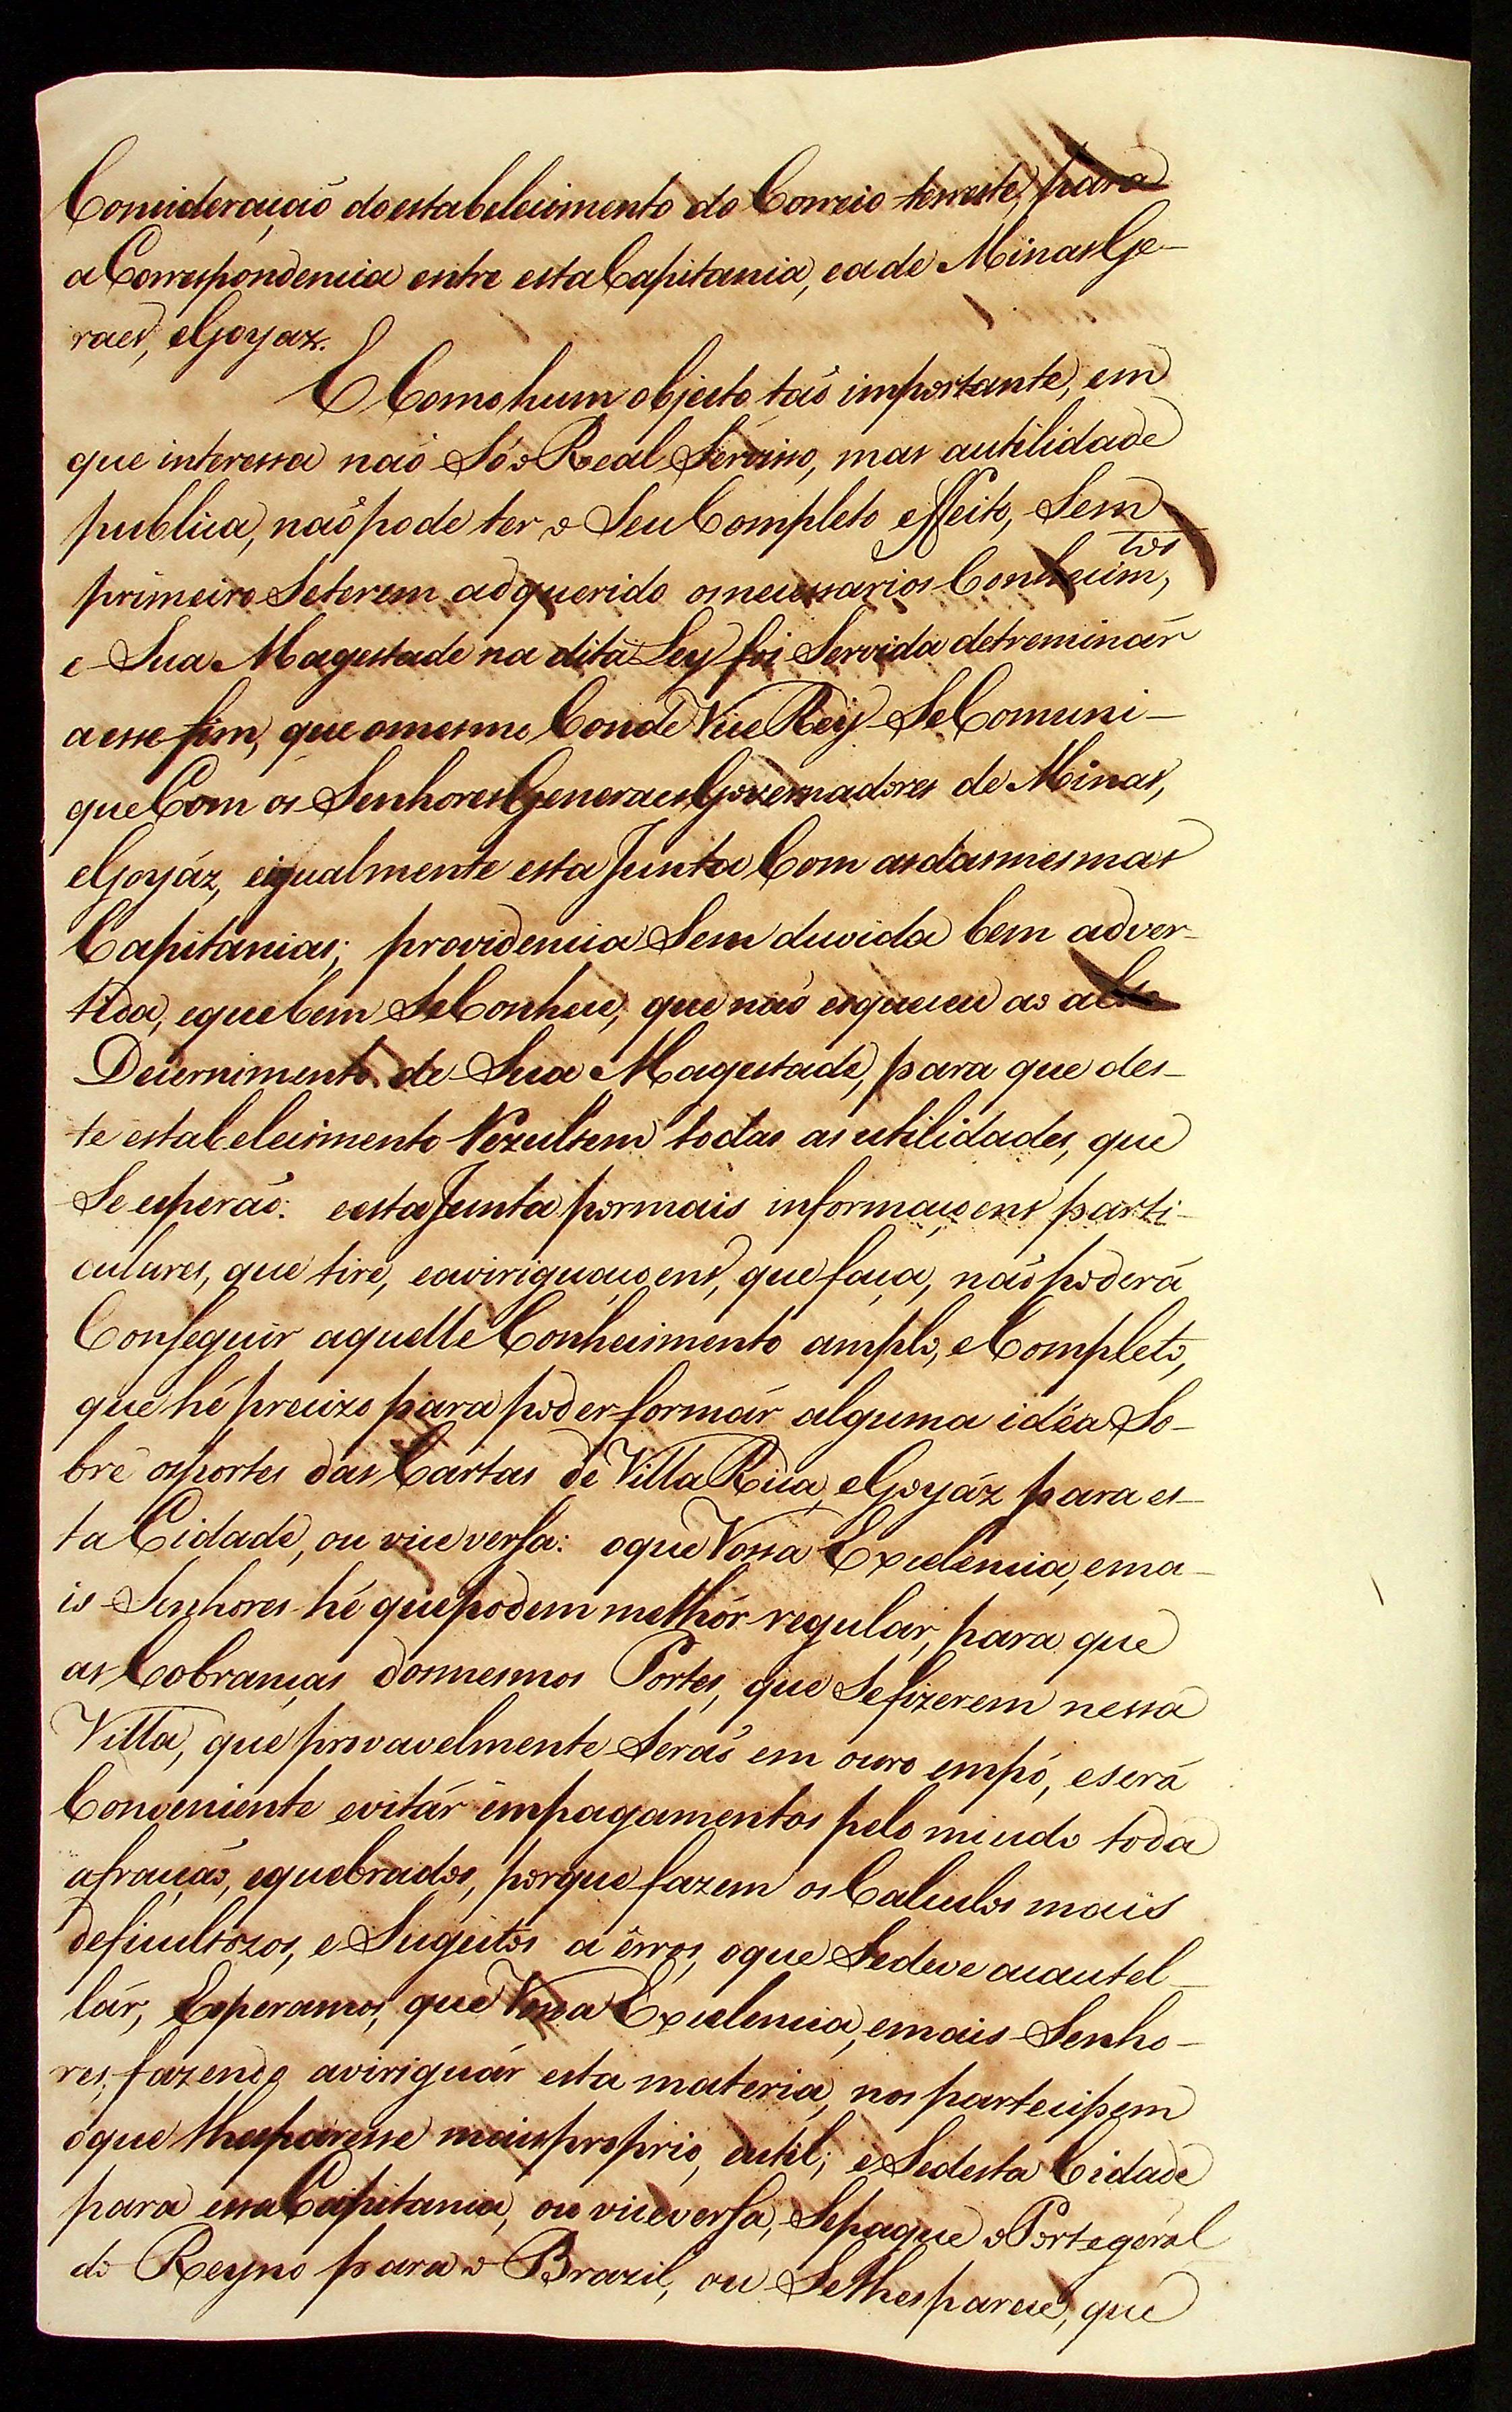 Consideração do estabelecimento do Correio terreste, para
a Correspondencia entre esta Capitania, e a de Minas Ge-
raes, e Goyaz.
E Como hum objecto taõ importante, em
que interessa naõ Só o Real Serviso, mas a utilidade
publica, naõ pode ter o Seu Completo effeito, Sem
primeiro Se terem adquerido os necessarios Conhecim.tos,
e Sua Magestade na dita Ley foi Servida detreminár
a esse fim, que o mesmo Conde Vice Rey Se Comuni-
que Com os Senhores Generaes Governadores de Minas,
e Goyáz, e igualmente esta Junta Com as das mesmas
Capitanias; providencia Sem duvida bem adver-
tida, e que bem Se Conhece, que naõ esqueceu ao alto
Decernimento de Sua Magestade, para que des-
te estabelecimento Rezultem todas as utilidades, que
Se esperaõ: e esta Junta por mais informaçoens parti-
culares, que tire, e aviriguaçoens, que faça, naõ poderá
Conseguir aquelle Conhecimento amplo, e Completo,
que hé precizo para poder formár alguma idéa So-
bre os portes das Cartas de Villa Rica, e Goyáz para es-
ta Cidade, ou vice versa: o que Vossa Excelencia, e ma-
is Senhores hé que podem melhór regular, para que
as Cobranças dos mesmos Portes, que Se fizerem nessa
Villa, que provavelmente Seraõ em ouro em pó, e será
Conveniente evitár em pagamentos pelo miudo toda
a fraçaõ, e quebrados, porque fazem os Calculos mais
deficultozos, e Sugeitos a érros, o que Se deve acautel-
lár, Esperamos, que Vossa Excelencia, e mais Senho-
res, fazendo aviriguár esta materia, nos partecipem
o que lhes paresse mais proprio, e util; e Se desta Cidade
para essa Capitania, ou vice versa, Se pague o Porte geral
do Reyno para o Brazil, ou Se lhes parece, que